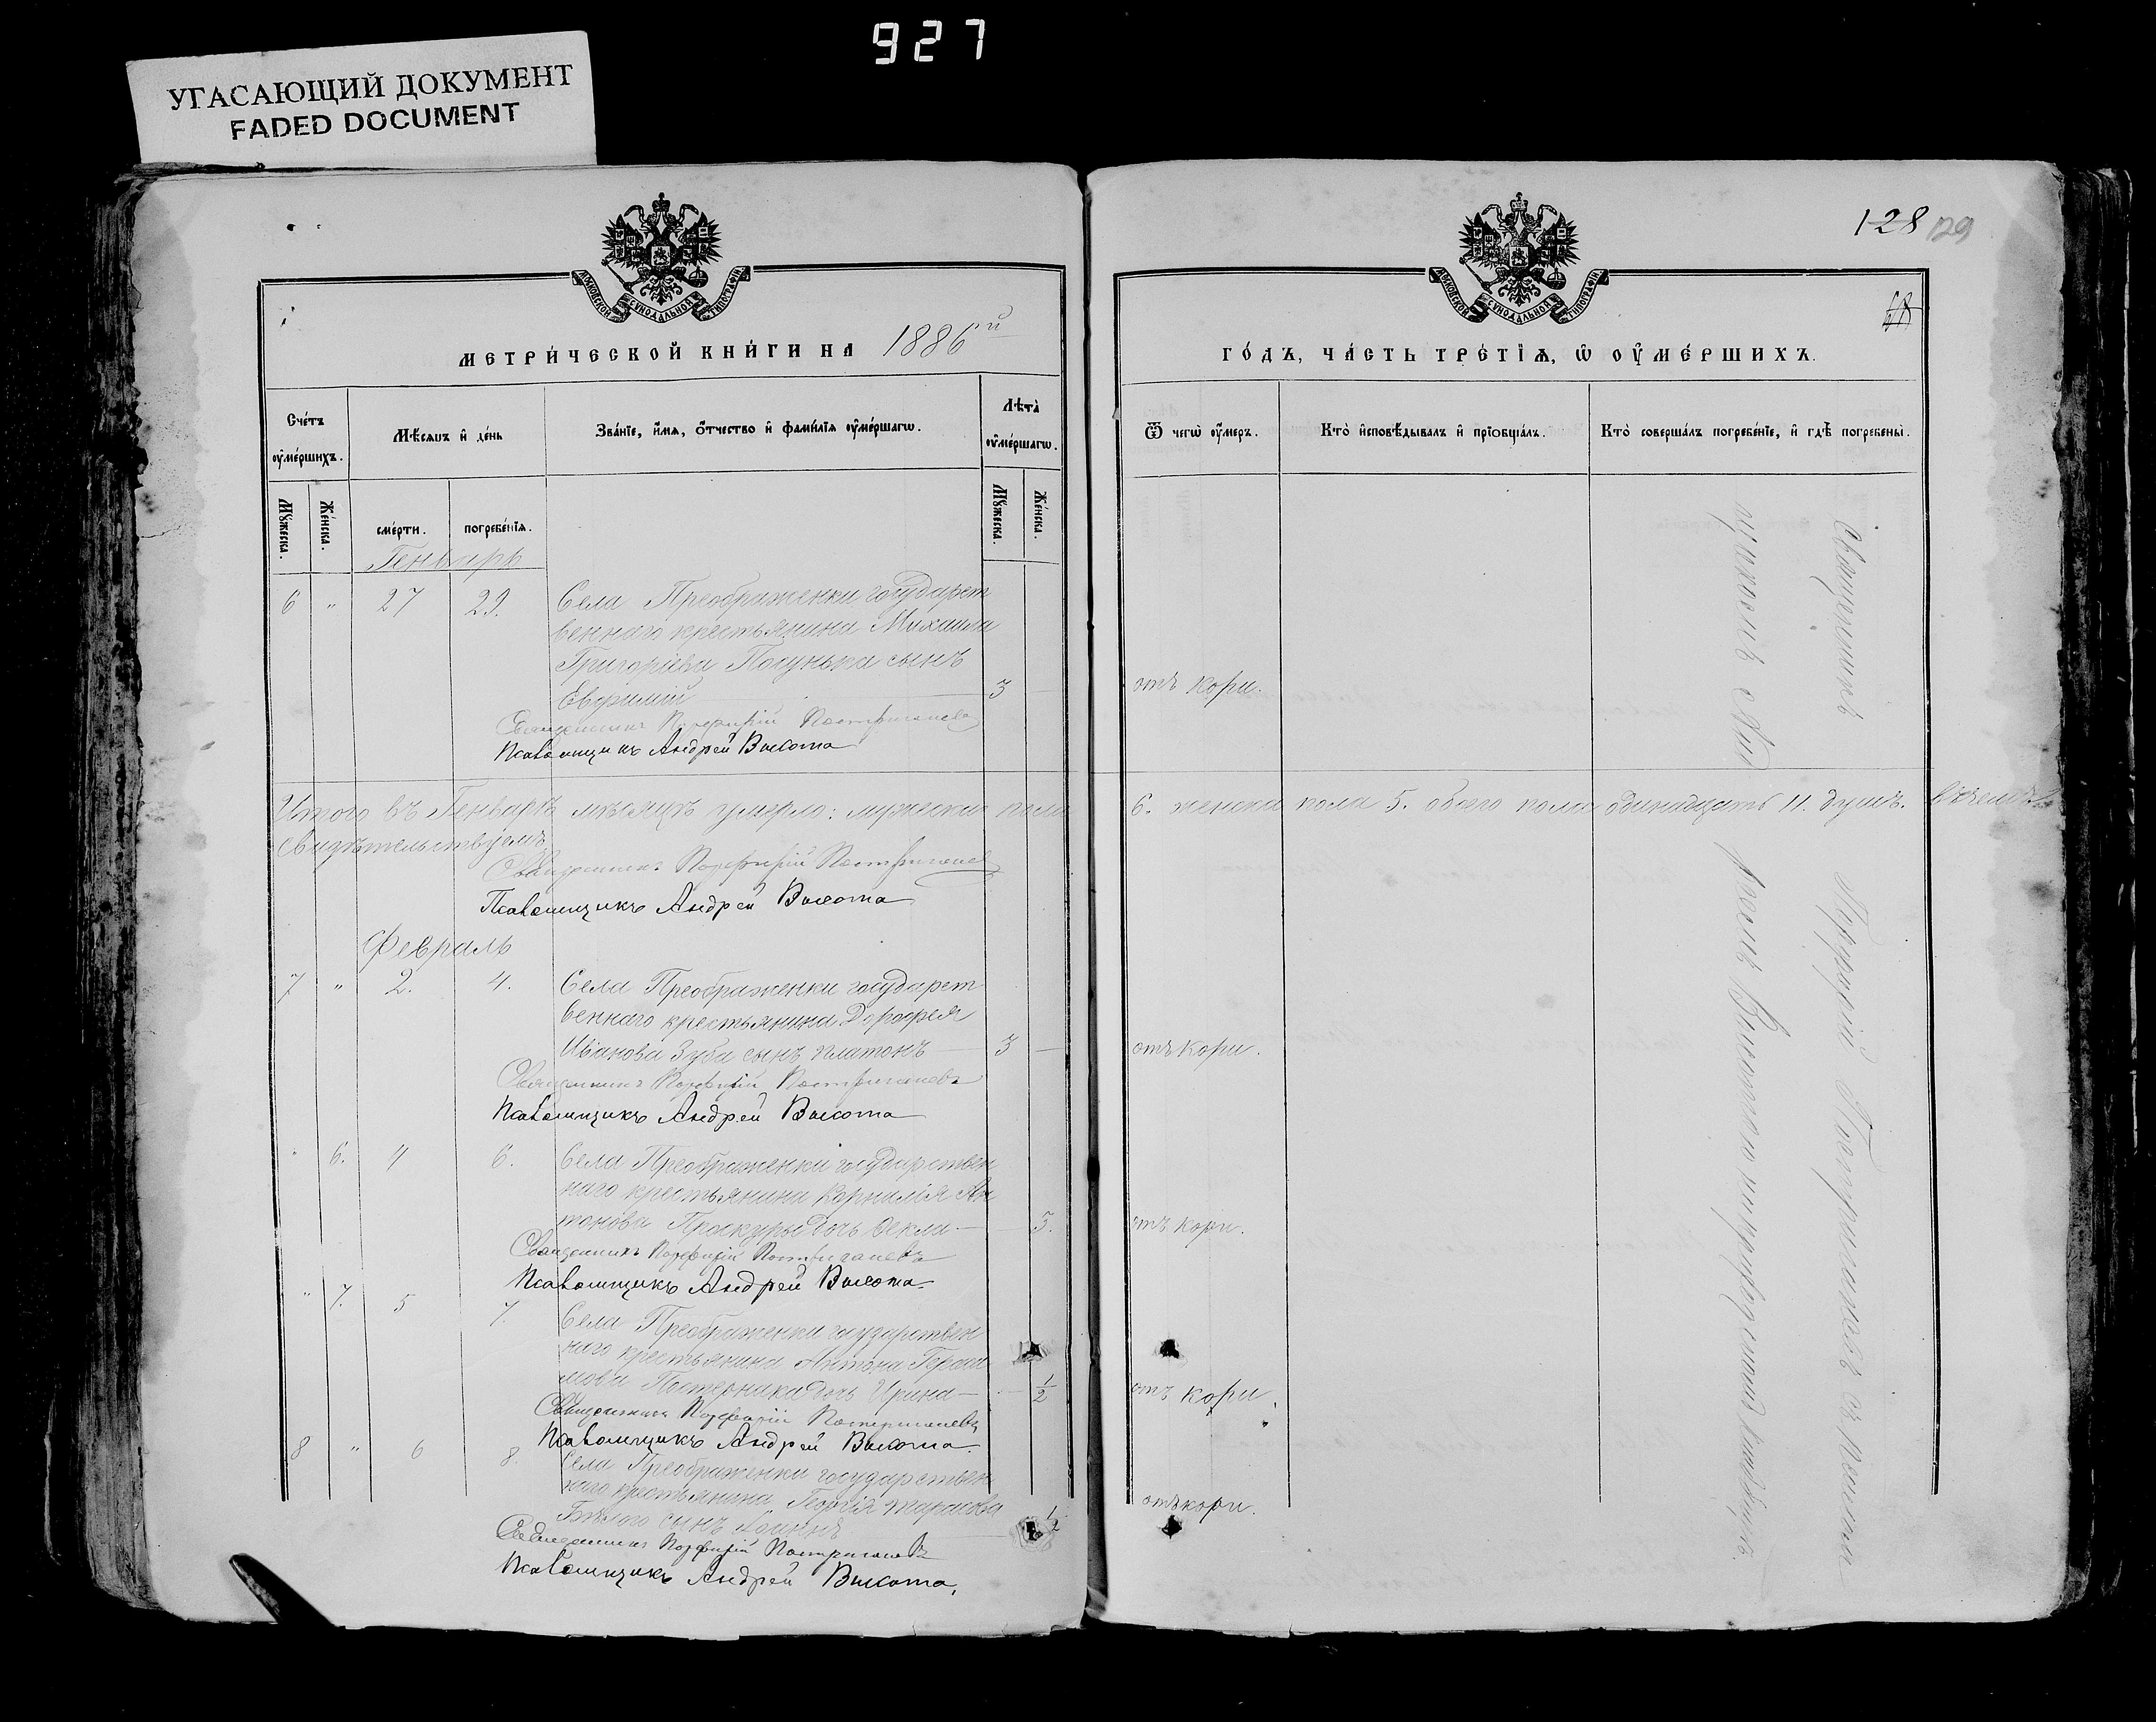 927
УГАСАЮЩИЙ ДОКУМЕНТ
FADED DOCUMENT
128 129
МОСКОВСКОЙ СѴНОДАЛЬНОЙ ТИПОГРАФІИ
МОСКОВСКОЙ СѴНОДАЛЬНОЙ ТИПОГРАФІИ
МЕТРИ́ЧЕСКОЙ КНИ́ГИ НА 1886й
ГО́ДЪ, ЧА́СТЬ ТРЕ́ТІѦ, Ѡ ОУ҆МЕ́РШИХЪ.
Сче́тъ оу҆ме́ршихъ.
Мѣ́сѧцъ и҆ де́нь
Зва́нїе, и҆́мѧ, ѻ҆́тчество и҆ фами́лїѧ оу҆ме́ршагѡ.
Лѣта̀ оу҆ме́ршагѡ.
Ѿ чегѡ̀ оу҆́меръ.
Кто̀ и҆сповѣ́дывалъ и҆ прїобща́лъ.
Кто̀ соверша́лъ погребе́нїе, и҆ гдѣ̀ погребены̀.
Мꙋ́жеска.
Же́нска.
сме́рти.
погребе́нїѧ.
Мꙋ́жеска.
Же́нска.
Генварь
6 " 27 29. Села Преображенки государст
веннаго крестьянина Михаила
Григоріева сынъ
Евфимій 3 — отъ кори.
Священникъ Порфирій Постригачевъ
Псаломщикъ Андрей Высота
Итого въ Генварѣ мѣсяцѣ умерло: мужеска пола 6. женска пола 5. обоего пола одинадцать 11. душъ. въ чемъ
свидѣтельствуемъ
Священникъ Порфирій Постригачевъ
Псаломщикъ Андрей Высота
Февраль
7 " 2. 4. Села Преображенки государст
веннаго крестьянина Дорофея
Иванова Зуба сынъ Платонъ — 3 — отъ кори.
Священникъ Порфирій Постригачевъ
Псаломщикъ Андрей Высота
" 6. 4 6. Села Преображенки государствен
наго крестьянина Корнилія Ан
тонова Проскуры дочь Ѳекла — 5. отъ кори.
Священникъ Порфирій Постригачевъ
Псаломщикъ Андрей Высота
" 7. 5 7. Села Преображенки государствен
наго крестьянина Антона Гераси
мова Постерника дочь Ирина — ½ отъ кори.
Священникъ Порфирій Постригачевъ
Псаломщикъ Андрей Высота
8 " 6 8. Села Преображенки государствен
наго крестьянина Георгія Тарасова
Бѣлаго сынъ ½ отъ кори.
Священникъ Порфирій Постригачевъ
Псаломщикъ Андрей Высота.
Священникъ Порфирій Постригачевъ съ Псалом
щикомъ